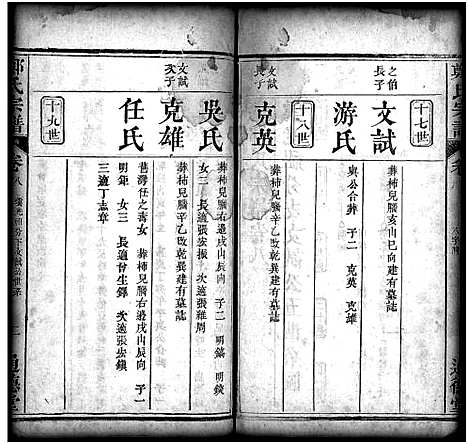 十七世
之伯長子
文試
葬柿兒腦亥山巳向建有墓誌
游氏
與公合葬 子二 克英 克雄
十八世
文試長子
克英
葬柿兒腦辛乙改乾巽建有墓誌
吳氏
葬柿兒腦右邊戌山辰向 子二 明鎬 明鋑
女三 長適張宏振 次適張維周
文試次子
克雄
葬柿兒腦辛乙改乾巽建有墓誌
任氏
舊灣任之海女 葬柿兒腦右邊戌山辰向 子一
明鉅 女三 長適曾生鐸 次適張宏鎮
三適丁志章
十九世
鄭氏宗譜
卷八